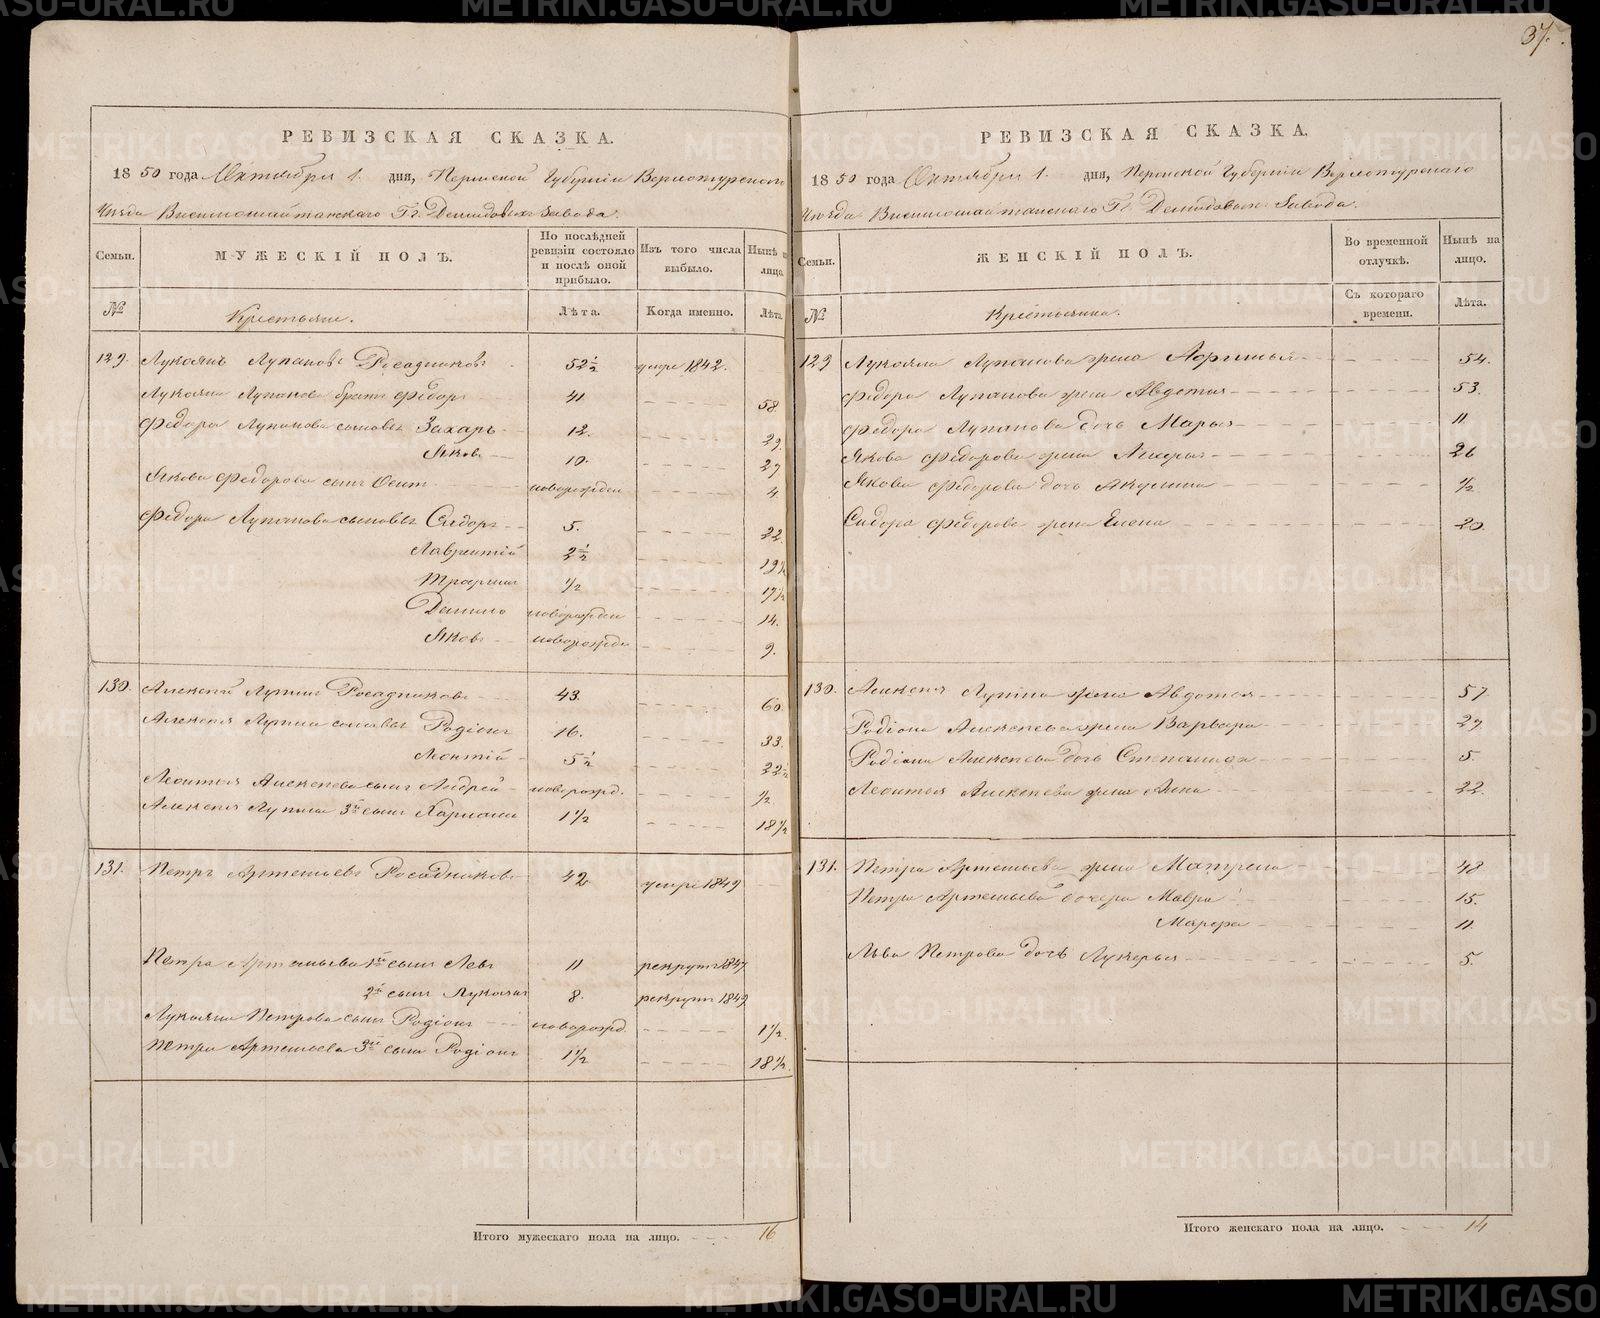 37.
РЕВИЗСКАЯ СКАЗКА.
1850 года Октября 1. дня, Пермской Губерніи Верхотурскаго
Уезда Висимошайтанскаго Гг. Демидовыхъ Завода.
Семьи. МУЖЕСКІЙ ПОЛЪ. По послѣдней ревизіи состояло и послѣ оной прибыло. Изъ того числа выбыло. Нынѣ на лицо.
№ Крестьяне. Лѣта. Когда именно. Лѣта.
129. Лукоянъ Лупановъ Росадниковъ 52½ умре 1842.
Лукояна Лупанова братъ Федоръ 41 58
Федора Лупанова сыновья Захаръ 12. 29.
Яковъ 10. 27
Якова Федорова сынъ Осипъ новорожден 4
Федора Лупанова сыновья Сидоръ 5. 22
Лаврентій 2½ 19½
Трофимъ ½ 17½
Данило новорожден 14.
Яковъ новорожден 9.
130. Алексей Лупинъ Росадниковъ 43 60
Алексея Лупина сыновья Родіонъ 16. 33.
Леонтій 5½ 22½
Леонтья Алексеева сынъ Андрей новорожд. ½
Алексея Лупина 3й сынъ Харитонъ 1½ 18½
131. Петръ Артемьевъ Росадниковъ 42 умре 1849
Петра Артемьева 1й сынъ Левъ 11 рекрутъ 1847
2й сынъ Лукоянъ 8. рекрутъ 1849
Лукояна Петрова сынъ Родіонъ новорожд. 1½
Петра Артемьева 3й сынъ Родіонъ 1½ 18½
Итого мужескаго пола на лицо. 16
РЕВИЗСКАЯ СКАЗКА.
1850 года Октября 1. дня, Пермской Губерніи Верхотурскаго
Уезда Висимошайтанскаго Гг. Демидовыхъ Завода.
Семьи. ЖЕНСКІЙ ПОЛЪ. Во временной отлучкѣ. Нынѣ на лицо.
№ Крестьянки. Съ котораго времени. Лѣта.
129 Лукояна Лупанова жена Афимья 54.
Федора Лупанова жена Авдотья 53.
Федора Лупанова дочь Марья 11
Якова Федорова жена Лукерья 26
Якова Федорова дочь Акулина ½
Сидора Федорова жена Елена 20
130. Алексея Лупина жена Авдотья 57
Родіона Алексеева жена Варвара 27
Родіона Алексеева дочь Степанида 5.
Леонтья Алексеева жена Анна 22.
131. Петра Артемьева жена Матрена 48
Петра Артемьева дочери Мавра 15.
Марфа 11.
Льва Петрова дочь Лукерья 5.
Итого женскаго пола на лицо. 14
METRIKI.GASO-URAL.RU